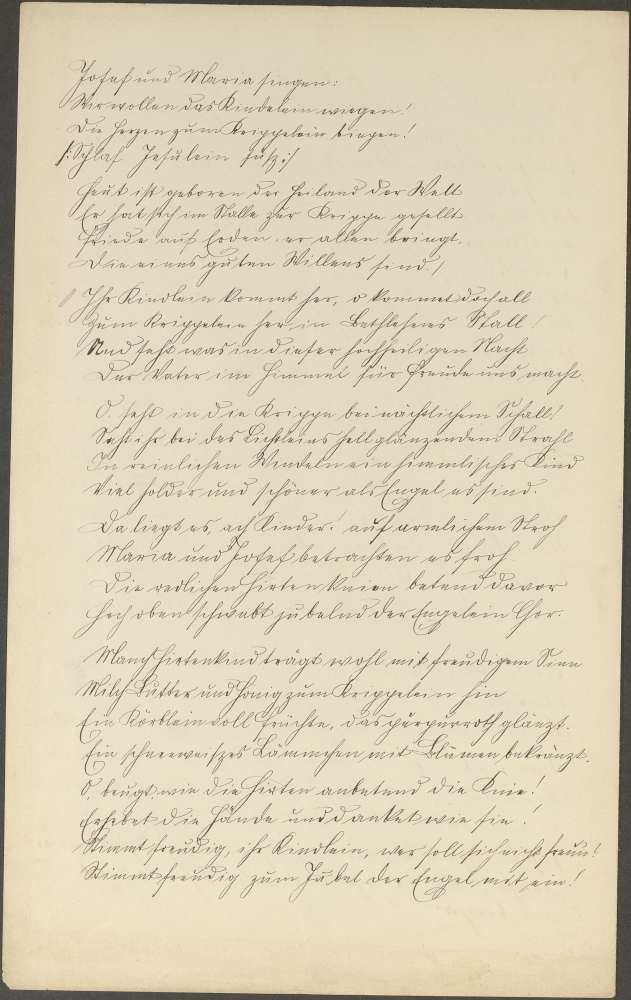 Josef und Maria singen:
Wir wollen das Kindelein wiegen!
Die Herzen zum Krippelein biegen!
/: Schlaf Jesulein süß :/
Heut ist geboren der Heiland der Welt
Er hat sich im Stalle zur Krippe gesellt
Friede auf Erden er allen bringt,
Die eines guten Willens sind /
Ihr Kindlein kommt her, o kommet doch all
Zum Krippelein her, in Bethlehems Stall!
Und seht was in dieser hochheiligen Nacht
Der Vater im Himmel für Freude uns macht.
O, seht in die Krippe bei nächtlichem Schall!
Seht ihr bei des Lichtleins hell glänzendem Strahl
In reinlichen Windeln ein himmlisches Kind
Viel holder und schöner als Engel es sind.
Da liegt es, ach Kinder! auf ärmlichem Stroh
Maria und Josef betrachten es froh
Die redlichen Hirten knien betend davor
Hoch oben schwebt jubelnd der Engelein Chor.
Manch Hirtenkind trägt wohl mit freudigem Sinn
Milch Butter und Honig zum Krippelein hin
Ein Körblein voll Früchte, das purpurroth glänzt.
Ein schneeweißes Lämmchen mit Blumen bekränzt.
O, beugt wie die Hirten anbetend die Knie!
Erhebet die Hände und danket wie sie!
Stimmt freudig, ihr Kindlein, wer soll sich nicht freun!
Stimmt freudig zum Jubel der Engel mit ein!